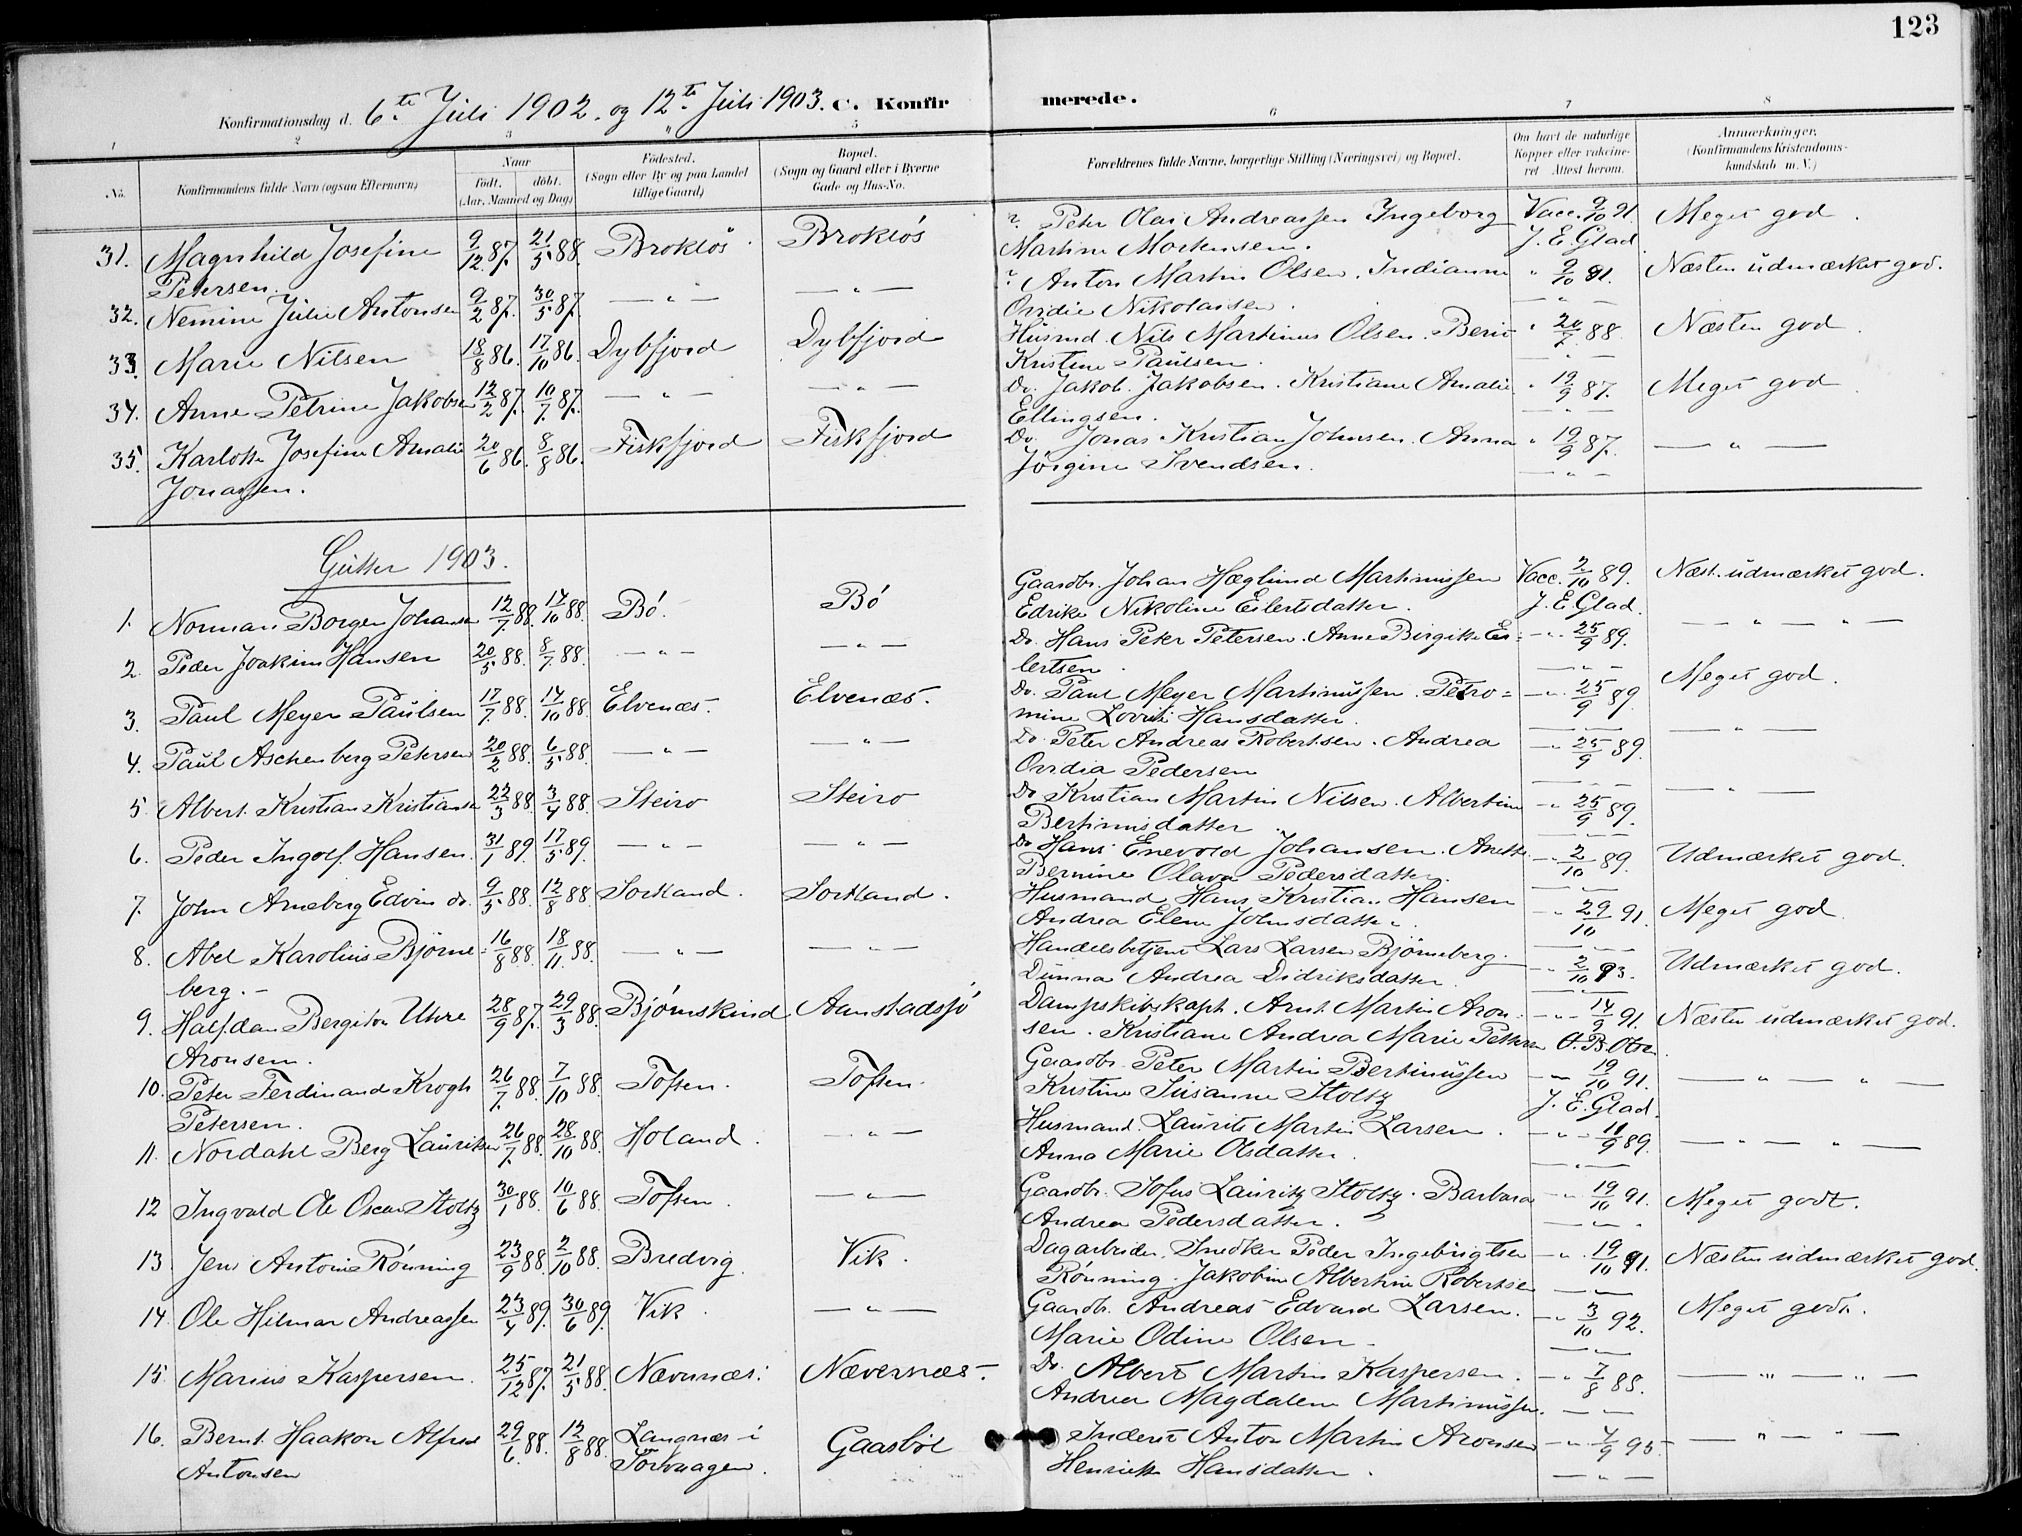 123
Konfirmationsdag d. 6te Juli 1902. og 12te Juli 1903. C. Konfirmerede.
1 2 3 4 5 6 7 8
No. Konfirmandens fulde Navn (ogsaa Efternavn) Naar født. døbt. (Aar, Maaned og Dag) Fødested. (Sogn eller By og paa Landet tillige Gaard) Bopæl. (Sogn og Gaard eller i Byerne Gade og Hus-No. Forældrenes fulde Navne, borgerlige Stilling (Næringsvei) og Bopæl. Om havt de naturlige Kopper eller vakcineret. Attest herom. Anmærkninger. (Konfirmandens Kristendomskundskab m. V.)
31. Magnhild Josefine 9/12 87. 21/5 88. Brokløs Brokløs Peter Olai Andreassen Ingeborg Vacc. 9/10 91 Meget god.
Petersen. Martine Mortensen. J. E. Glad
32. Nemine Julie Antonsen 9/2 87. 30/5 87. — " — — " — Anton Martin Olsen. Indianne " 9/10 91. Næsten udmærket god.
Ovidie Nikolaisen. — " —
33. Marie Nilsen 18/8 86. 17/10 86. Dybfjord Dybfjord Husmd. Nils Martinus Olsen. Berit " 20/7 88 Næsten god.
Kristine Paulsen. — " —
34. Anne Petrine Jakobsen 12/2 87. 10/7 87. — " — — " — Do. Jakob Jakobsen. Kristiane Amalie " 19/9 87. Meget god
Ellingsen. — " —
35. Karlotte Josefine Amalie 20/6 86. 8/8 86. Fiskfjord Fiskfjord Do. Jonas Kristian Johnsen. Anna " 19/9 87. — " —
Jonassen. Jørgine Svendsen. — " —
Gutter 1903.
1. Norman Borgen Johansen 12/7 88. 14/10 88. Bø. Bø Gaardbr. Johan Hæglund Martinussen Vacc. 2/10 89. Næst. udmærket god.
Edrike Nikoline Eilertsdatter. J. E. Glad.
2. Peder Joakim Hansen 20/5 88. 8/7 88. — " — — " — Do. Hans Peter Petersen. Anne Birgitte Ei= — " 25/9 89. — " — " —
lertsen. — " —
3. Paul Meyer Paulsen 17/7 88. 14/10 88. Elvenæs. Elvenæs. Do. Paul Meyer Martinussen. Petro= — " 25/9 89. Meget god.
mine Lovise Hansdatter. — " —
4. Paul Aschenberg Petersen 20/2 88. 6/5 88. — " — — " — Do. Peter Andreas Robertsen. Andrea — " 25/9 89. — " —
Ovidia Pedersen — " —
5. Albert Kristian Kristiansen 22/3 88. 3/4 88. Steiro Steiro Do Kristian Martin Nilsen. Albertine — " 25/9 89. — " —
Bertinusdatter — " —
6. Peder Ingolf Hansen. 31/1 89. 17/5 89. — " — — " — Do Hans Enevold Johansen. Anette — " 2/10 89. Udmærket god.
Bernine Olava Pedersdatter. — " —
7. John Arneberg Edvin do. 9/5 88. 12/8 88. Sortland. Sortland. Husmand Hans Kristian Hansen — " 29/10 91. Meget god
Andrea Elene Johnsdatter. — " —
8. Abel Karolius Bjørne= 16/8 88. 18/11 88. — " — — " — Handelsbetjent Lars Larsen Bjørneberg. — " 2/10 93. Udmærket god.
berg. Dünna Andrea Didriksdatter. — " —
9. Halfdan Bergiton Uhre 28/9 87. 29/3 88. Bjørnskind Aanstadsjø Dampskibskapt. Arnt Martin Aron= — " 14/9 91. Næsten udmærket god.
Aronsen. sen. Kristiane Andrea Marie Pettersen O. B. Olsen.
10. Peter Ferdinand Krogh 26/7 88. 7/10 88. Tofsen. Tofsen. Gaardbr. Peter Martin Bertinussen — " 19/10 91. — " — " —
Petersen. Kristine Susanne Stoltz J. E. Glad.
11. Nordahl Berg Lauritsen 26/7 88. 28/10 88. Holand. — " — Husmand Laurits Martin Larsen. — " 11/9 89. — " — " —
Anna Marie Olsdatter. — " —
12 Ingvald Ole Oscar Stoltz 30/1 88. 10/6 88. Tofsen. — " — Gaardbr. Sofus Lauritz Stoltz. Barbara — " 19/10 91. Meget godt.
Andrea Pedersdatter. — " —
13. Jens Antonius Rønning 23/9 88. 2/10 88. Bredvig. Vik. Dagarbeider, Snedker Peder Ingebrigtsen — " 19/10 91. Næsten udmærket god.
Rønning. Jakobine Albertine Robertsen — " —
14. Ole Hilmar Andreassen 23/4 89. 30/6 89. Vik. — " — Gaardbr. Andreas Edvard Larsen. — " 3/10 92. Meget godt.
Marie Odine Olsen. — " —
15. Marius Kaspersen. 25/12 87. 21/5 88. Nævernæs. Nævernæs. Do. Albert Martin Kaspersen. — " 7/8 88. — " — " —
Andrea Magdalena Martinussen. — " —
16. Bernt Haakon Alfred 29/6 88. 12/8 88. Langnæs i Gaasbøl Inderst Anton Martin Aronsen — " 7/9 95. — " — " —
Antonsen Torvaagen. Henriette Hansdatter. — " —